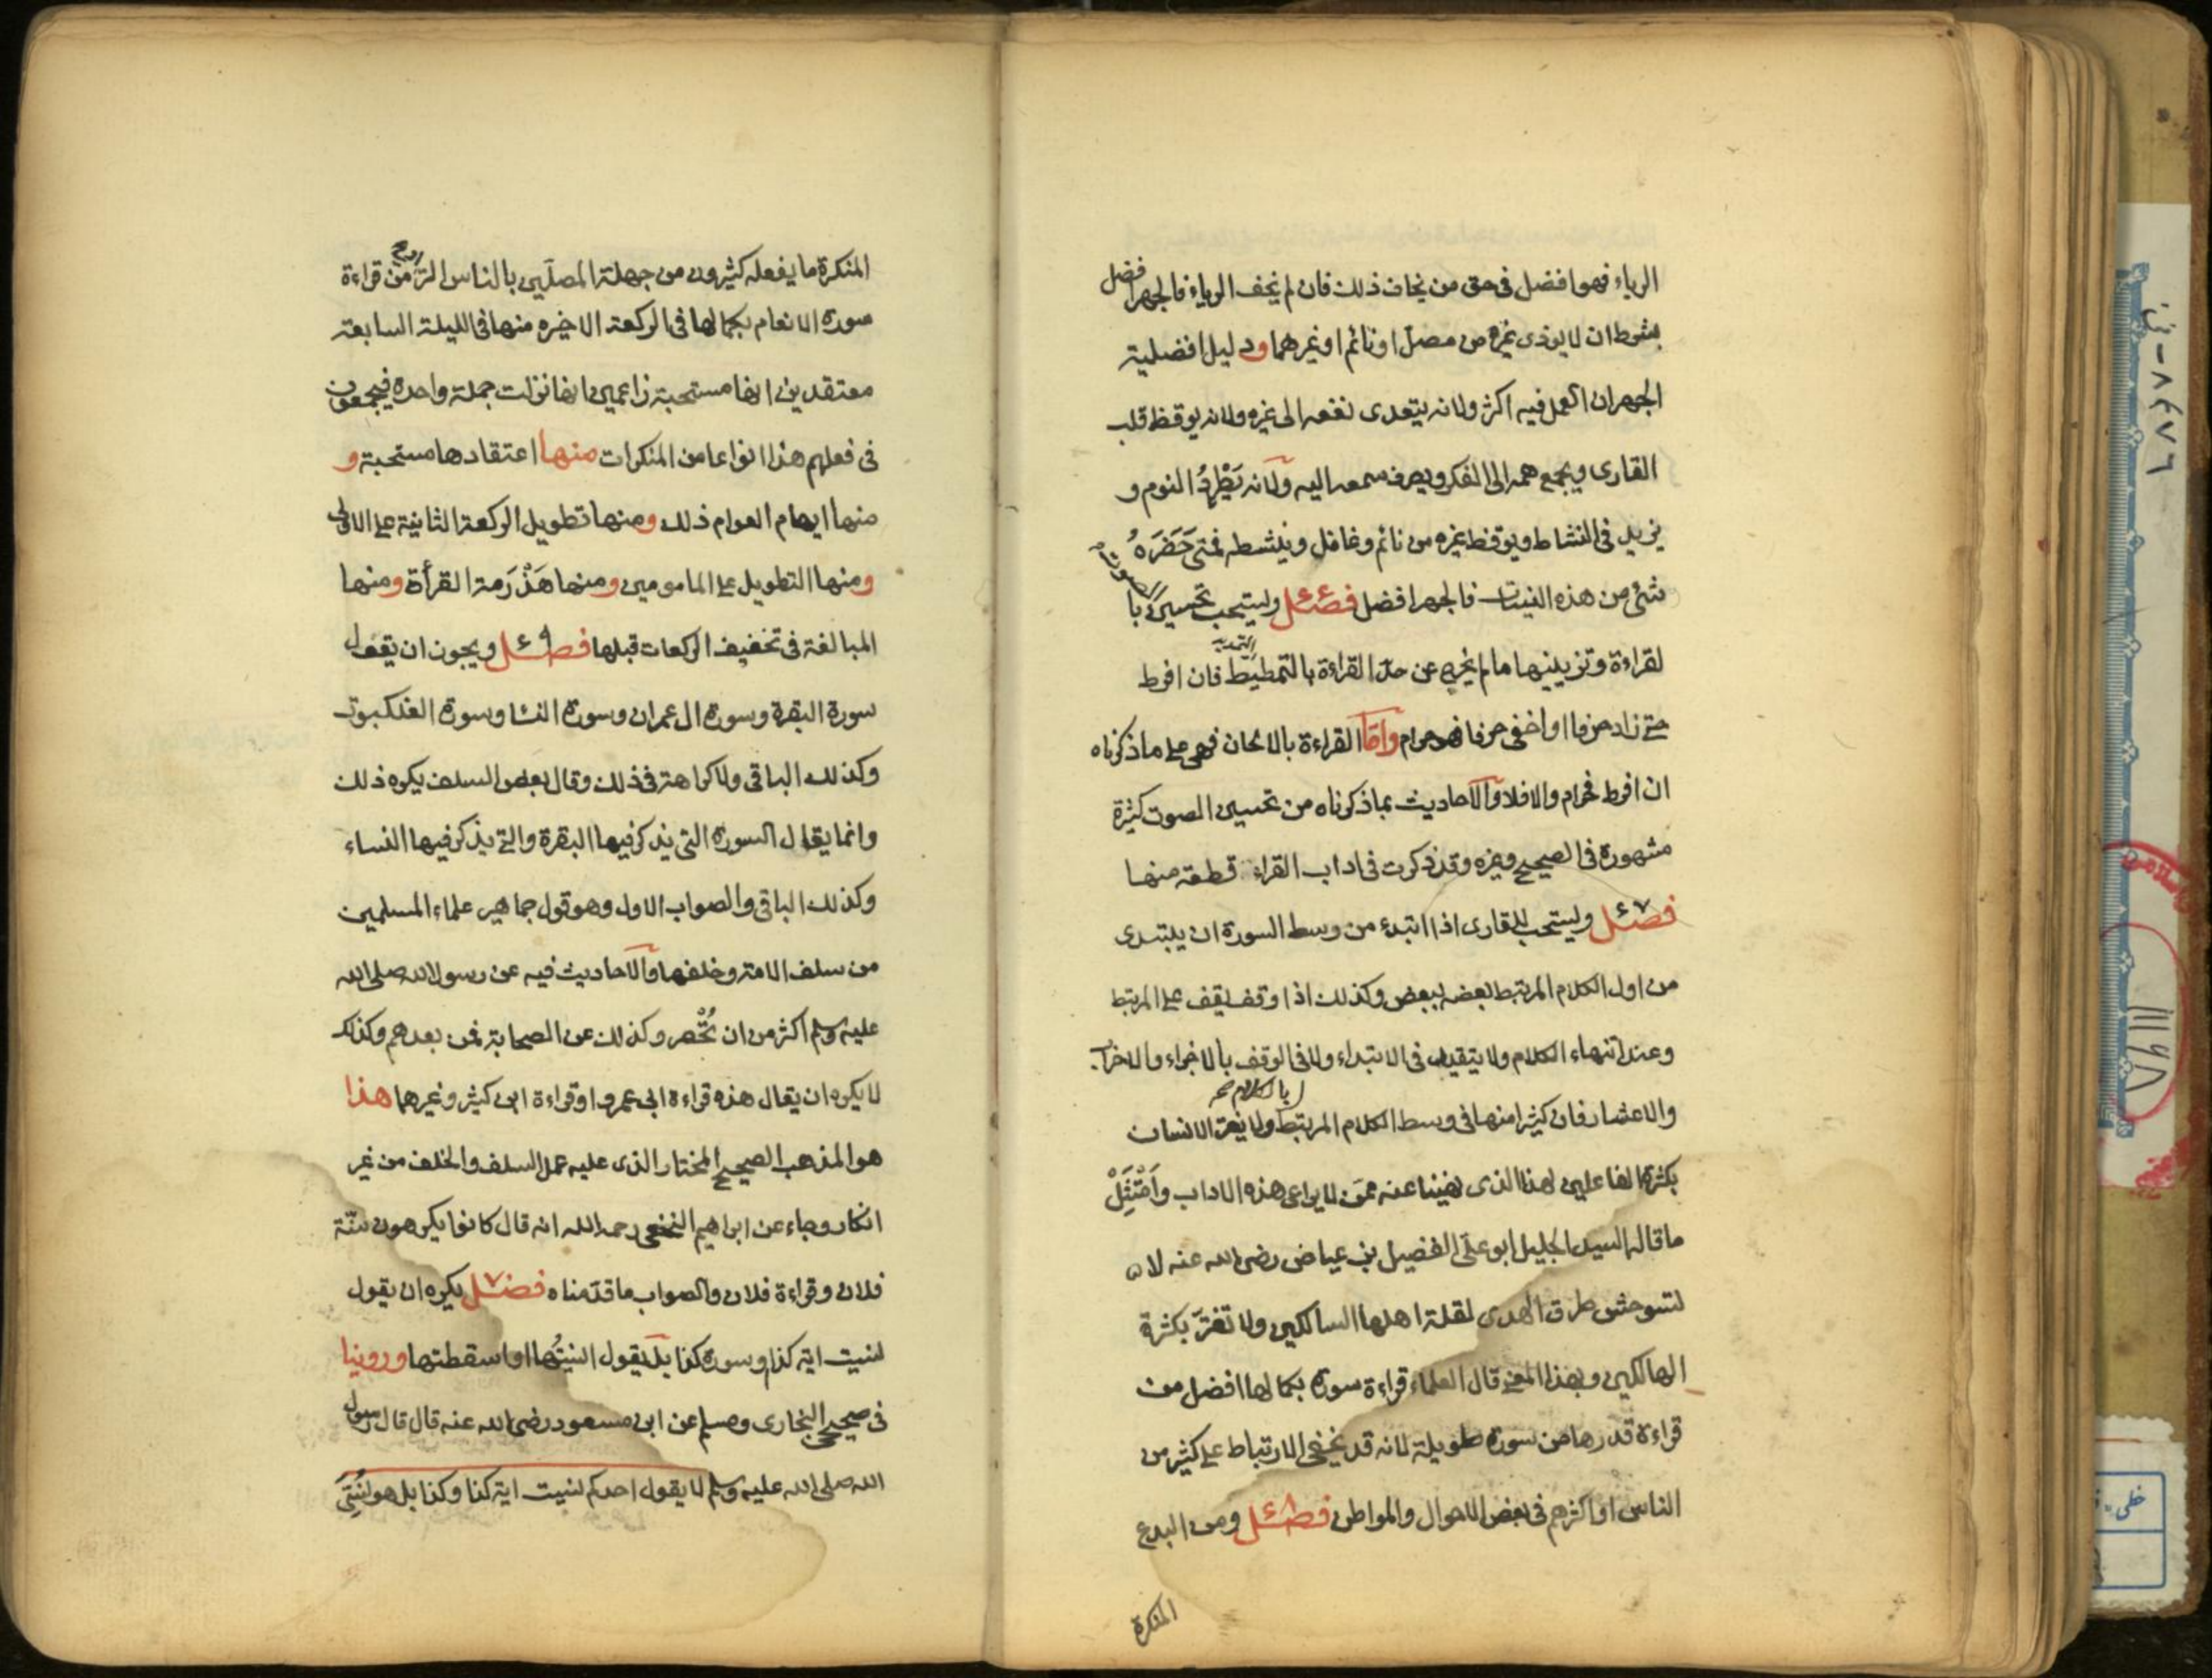 الرياء فهو افضل فى حق من يخاف ذلك فان لم يخف الرياء فالجهر افضل
بشرط ان لا يوذى غيره من مصل او نائم او غيرهما ودليل افضلية
الجهر ان العمل فيه اكثر ولانه يتعدى نفعه الى غيره ولانه يوقظ قلب
القارى ويجمع همه الى الفكر ويصرف سمعه اليه ولانه يَطْرُدُ النوم و
يزيد فى النشاط ويوقظ غيره من نائم وغافل وينشطه فمتى حَضَرَهُ
شئ من هذه النيات فالجهر افضل فصل ويستحب تحسين الصوت با
لقراءة وتزيينها ما لم يخرج عن حد القراءة بالتمطيط فان افرط
حتى زاد حرفا او اخفى حرفا فهو حرام واما القراءة بالالحان فهى على ما ذكرناه
ان افرط فحرام والا فلا والاحاديث بما ذكرناه من تحسين الصوت كثيرة
مشهورة فى الصحيح وغيره وقد ذكرت فى اداب القراء قطعة منها
فصل ويستحب للقارى اذا ابتدء من وسط السورة ان يبتدى
من اول الكلام المرتبط بعضه ببعض وكذلك اذا وقف يقف على المرتبط
وعند انتهاء الكلام ولا يتقيد فى الابتداء ولا فى الوقف بالاجزاء والاحزاب
والاعشار فان كثيرا منها فى وسط الكلام المرتبط بالكلام ولا يغتر الانسان
بكثرة الفاعلين لهذا الذى نهينا عنه ممن لا يراعى هذه الاداب وامْتَثِلْ
ما قاله السيد الجليل ابو على الفضيل بن عياض رضى الله عنه لا
تستوحش طرق الهدى لقلة اهلها السالكين ولا تغتر بكثرة
الهالكين ولهذا المعنى قال العلماء قراءة سورة بكمالها افضل من
قراءة قدرها من سورة طويلة لانه قد يخفى الارتباط على كثير من
الناس او اكثرهم فى بعض الاحوال والمواطن فصل ومن البدع
المنكرة
المنكرة ما يفعله كثيرون من جهلة المصلين بالناس التراويح من قراءة
سورة الانعام بكمالها فى الركعة الاخيره منها فى الليلة السابعة
معتقدين انها مستحبة زاعمين انها نزلت جملة واحدة فيجمعون
فى فعلهم هذا انواعا من المنكرات منها اعتقادها مستحبة و
منها ايهام العوام ذلك ومنها تطويل الركعة الثانية على الاولى
ومنها التطويل على المامومين ومنها هَذْرَمة القرأة ومنها
المبالغة فى تخفيف الركعات قبلها فصل ويجوز ان يقول
سورة البقرة وسورة ال عمران وسورة النسا وسورة العنكبوت
وكذلك الباقى ولا كراهة فى ذلك وقال بعض السلف يكره ذلك
وانما يقال السورة التى يذكر فيها البقرة والتى يذكر فيها النساء
وكذلك الباقى والصواب الاول وهو قول جماهير علماء المسلمين
من سلف الامة وخلفها والاحاديث فيه عن رسول الله صلى الله
عليه وسلم اكثر من ان تُحْصر وكذلك عن الصحابة فمن بعدهم وكذلك
لا يكره ان يقال هذه قراءة ابى عمرو او قراءة ابن كثير وغيرهما هذا
هو المذهب الصحيح المختار الذى عليه عمل السلف والخلف من غير
انكار وجاء عن ابراهيم النخعى رحمه الله انه قال كانوا يكرهون سنّة
فلان وقراءة فلان والصواب ما قدمناه فصل يكره ان يقول
نسيت اية كذا وسورة كذا بل يقول انسيتُها او اسقطتها وروينا
فى صحيحى البخارى ومسلم عن ابن مسعود رضى الله عنه قال قال رسول
الله صلى الله عليه وسلم لا يقول احدكم نسيت اية كذا وكذا بل هو نُسِّىَ